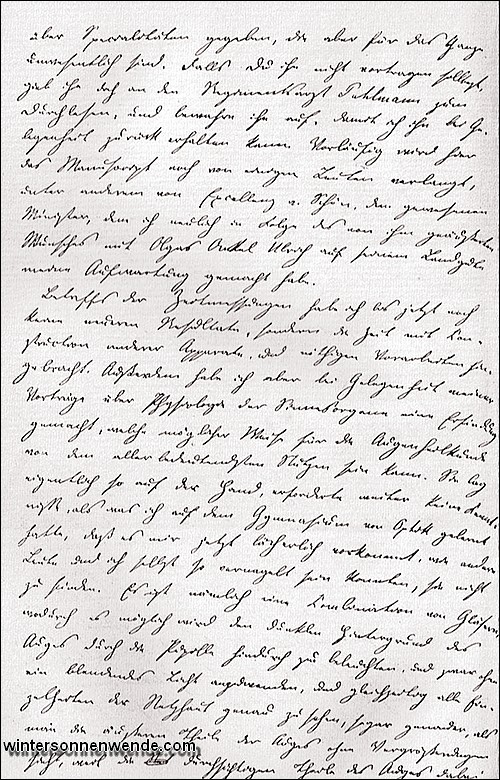 über Specialitäten gegeben, die aber für das Ganze
unwesentlich sind. Falls Du ihn nicht vortragen solltest,
gieb ihn doch an den Regimentsarzt zum
Durchlesen, und bewahre ihn auf, damit ich ihn bei Ge-
legenheit zurück erhalten kann. Vorläufig wird hier
das Manuscript noch von einigen Leuten verlangt,
unter anderem von Excellenz v. Schön, dem gewesenen
Minister, dem ich neulich in Folge des von ihm geäusserten
Wunsches mit Olgas Onkel Ulrich auf seinem Landgute
meine Aufwartung gemacht habe.
Betreffs der Zeitmessungen habe ich bis jetzt noch
keine neueren Resultate, sondern die Zeit mit Con-
struction anderer Apparate, und nöthigen Vorarbeiten hin-
gebracht. Ausserdem habe ich aber bei Gelegenheit meiner
Vorträge über Physiologie der Sinnesorgane eine Erfindung
gemacht, welche möglicher Weise für die Augenheilkunde
von dem allerbedeutendsten Nutzen sein kann. Sie lag
eigentlich so auf der Hand, erforderte weiter keine Kennt-
nisse, als was ich auf dem Gymnasium von Optik gelernt
hatte, dass es mir jetzt lächerlich vorkommt, wie andere
Leute und ich selbst so vernagelt sein konnten, sie nicht
zu finden. Es ist nämlich eine Combination von Gläsern,
wodurch es möglich wird den dunklen Hintergrund des
Auges durch die Pupille hindurch zu beleuchten, und zwar ohne
ein blendendes Licht anzuwenden, und gleichzeitig alle Ein-
zelheiten der Netzhaut genau zu sehen, sogar genauer, als
man die äusseren Theile des Auges ohne Vergrösserungen
sieht, weil die durchsichtigen Theile des Auges dabei
wintersonnenwende.com